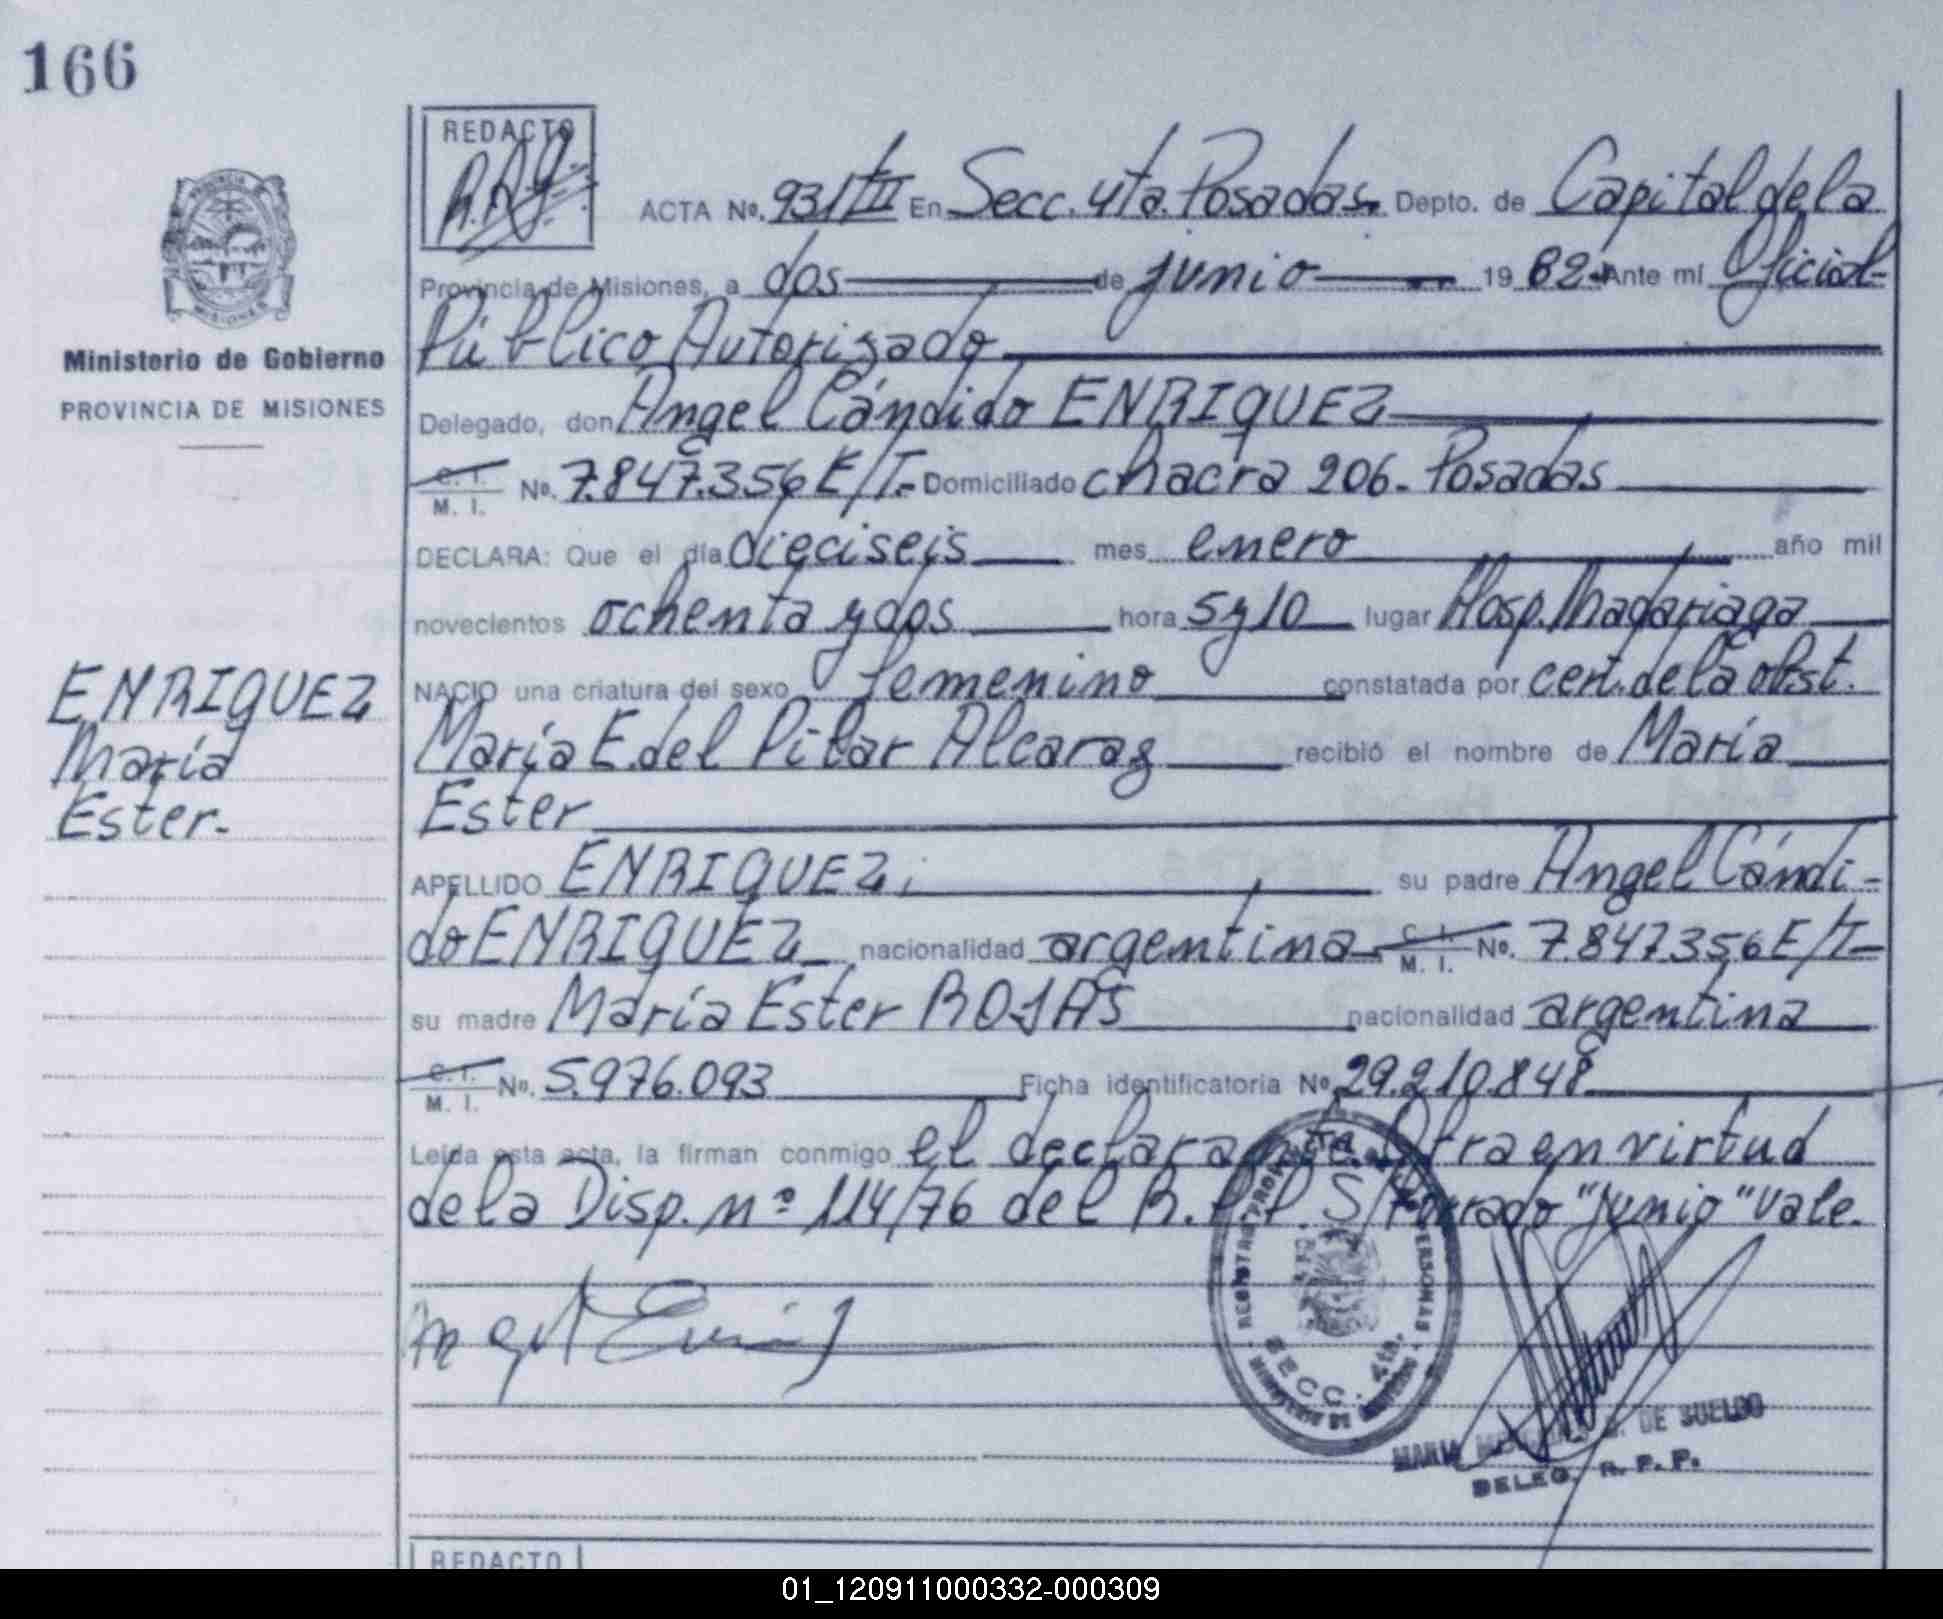 166
REDACTO
ACTA Nº. 931/tII En Secc. 4ta. Posadas. Depto. de Capital de la
Provincia de Misiones, a dos de junio 1982. Ante mí Oficial
Público Autorizado
Ministerio de Gobierno
PROVINCIA DE MISIONES
Delegado, don Angel Cándido ENRIQUEZ
C. I. M. I. Nº. 7.847.356 E/T.- Domiciliado chacra 206. Posadas
DECLARA: Que el día dieciseis mes enero año mil
novecientos ochenta y dos hora 5 y 10 lugar Hosp. Madariaga
ENRIQUEZ
María
Ester.
NACIO una criatura del sexo femenino constatada por cert. de la obst.
María E. del Pilar Alcaraz recibió el nombre de María
Ester
APELLIDO ENRIQUEZ; su padre Angel Cándi-
do ENRIQUEZ nacionalidad argentina C. I. M. I. Nº. 7.847.356 E/T-
su madre María Ester ROJAS nacionalidad argentina
C. I. M. I. Nº. 5.976.093 Ficha identificatoria Nº 29.210.848
Leída esta acta, la firman conmigo el declarante Otra en virtud
de la Disp. nº 114/76 del R. P. P S/ borrado "junio" Vale.
SECC. 4ta.
MARIA DE SUELDO
DELEG. R. P. P.
REDACTO
01_120911000332-000309